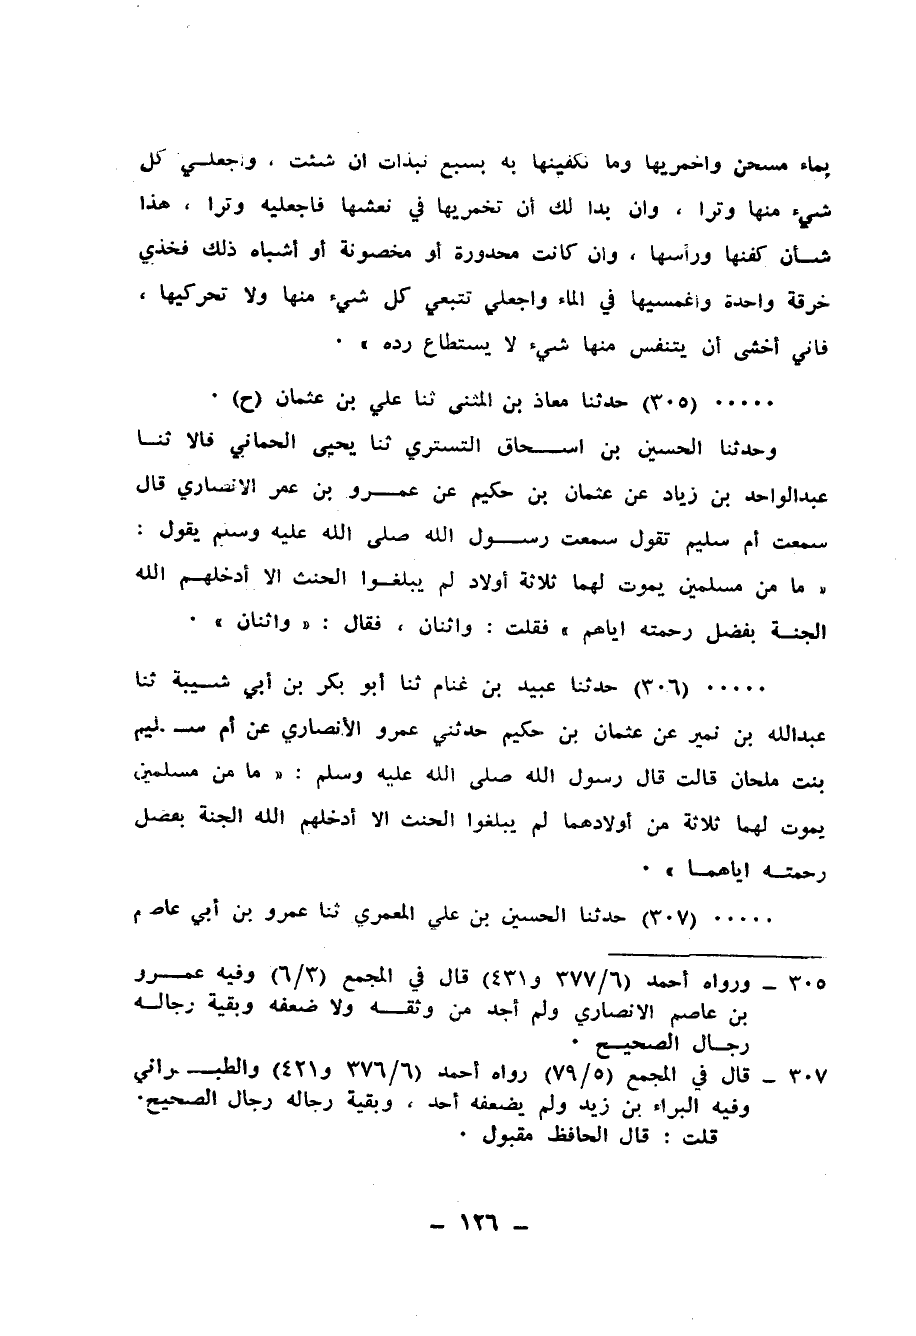 بماء مسخن واخمريها وما تكفينها به بسبع نبذات ان شئت ، واجعلـي كل
شيء منها وترا ، وان بدا لك أن تخمريها في نعشها فاجعليه وترا ، هذا
شـأن كفنها ورأسها ، وان كانت محدورة أو مخصونة أو أشباه ذلك فخذي
خرقة واحدة واغمسيها في الماء واجعلي تتبعي كل شيء منها ولا تحركيها ،
فاني أخشى أن يتنفس منها شيء لا يستطاع رده » ٠
٠٠٠٠٠ (٣٠٥) حدثنا معاذ بن المثنى ثنا علي بن عثمان (ح) ٠
وحدثنا الحسين بن اسـحاق التستري ثنا يحيى الحماني قالا ثنـا
عبدالواحد بن زياد عن عثمان بن حكيم عن عمـرو بن عمر الانصاري قال
سمعت أم سليم تقول سمعت رسـول الله صلى الله عليه وسلم يقول :
« ما من مسلمين يموت لهما ثلاثة أولاد لم يبلغـوا الحنث الا أدخلهـم الله
الجنـة بفضل رحمته اياهم » فقلت : واثنان ، فقال : « واثنان » ٠
٠٠٠٠٠ (٣٠٦) حدثنا عبيد بن غنام ثنا أبو بكر بن أبي شـيبة ثنا
عبدالله بن نمير عن عثمان بن حكيم حدثني عمرو الأنصاري عن أم سـليم
بنت ملحان قالت قال رسول الله صلى الله عليه وسلم : « ما من مسلمين
يموت لهما ثلاثة من أولادهما لم يبلغوا الحنث الا أدخلهم الله الجنة بفضل
رحمتـه اياهمـا » ٠
٠٠٠٠٠ (٣٠٧) حدثنا الحسين بن علي المعمري ثنا عمرو بن أبي عاصم
٣٠٥ ـ ورواه أحمد (٣٧٧/٦ و٤٣١) قال في المجمع (٦/٣) وفيه عمـرو
بن عاصم الانصاري ولم أجد من وثقـه ولا ضعفه وبقية رجالـه
رجـال الصحيـح ٠
٣٠٧ ـ قال في المجمع (٧٩/٥) رواه أحمد (٣٧٦/٦ و٤٢١) والطبـراني
وفيه البراء بن زيد ولم يضعفه أحد ، وبقية رجاله رجال الصحيح٠
قلت : قال الحافظ مقبول ٠
ـ ١٢٦ ـ